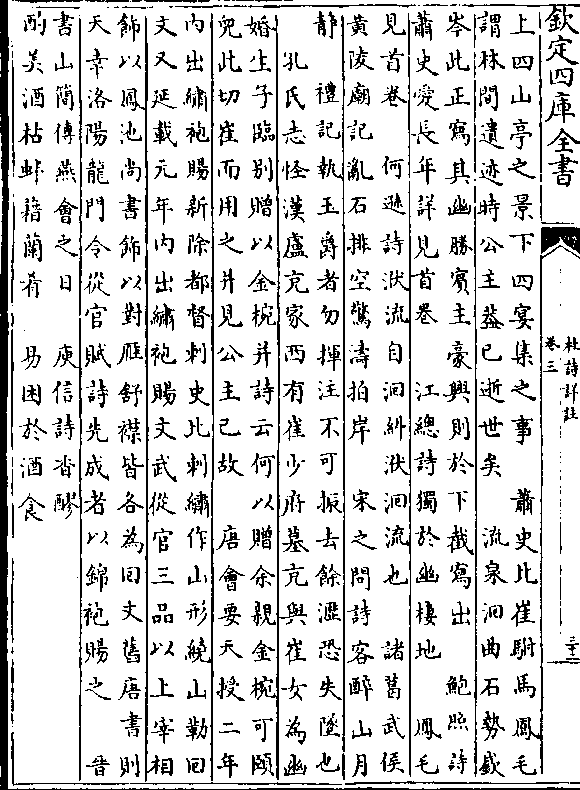 欽定四庫全書
杜詩詳註
卷三
三十二
上四山亭之景下四宴集之事　蕭史比崔駙馬鳳毛
謂林間遺迹時公主葢已逝世矣　流泉洄曲石勢嶔
岑此正寫其幽勝賓主豪興則於下截寫出　鮑照詩
蕭史愛長年詳見首卷　江總詩獨於幽棲地　鳳毛
見首卷　何遜詩洑流自洄糾洑洄流也　諸葛武侯
黄陵廟記亂石排空驚濤拍岸　宋之問詩客醉山月
静　禮記執玉爵者勿揮注不可振去餘瀝恐失墜也
孔氏志怪漢盧充家西有崔少府墓充與崔女為幽
婚生子臨别贈以金椀并詩云何以贈余親金椀可頤
兒此切崔而用之并見公主已故　唐會要天授二年
内出繡袍賜新除都督刺史比刺繡作山形繞山勒回
文又延載元年内出繡袍賜文武從官三品以上宰相
飾以鳳池尚書飾以對雁舒襟皆各為回文舊唐書則
天幸洛陽龍門令從官賦詩先成者以錦袍賜之　晉
書山簡傳燕會之日　庾信詩香醪
酌美酒枯蚌藉蘭肴　易困於酒食